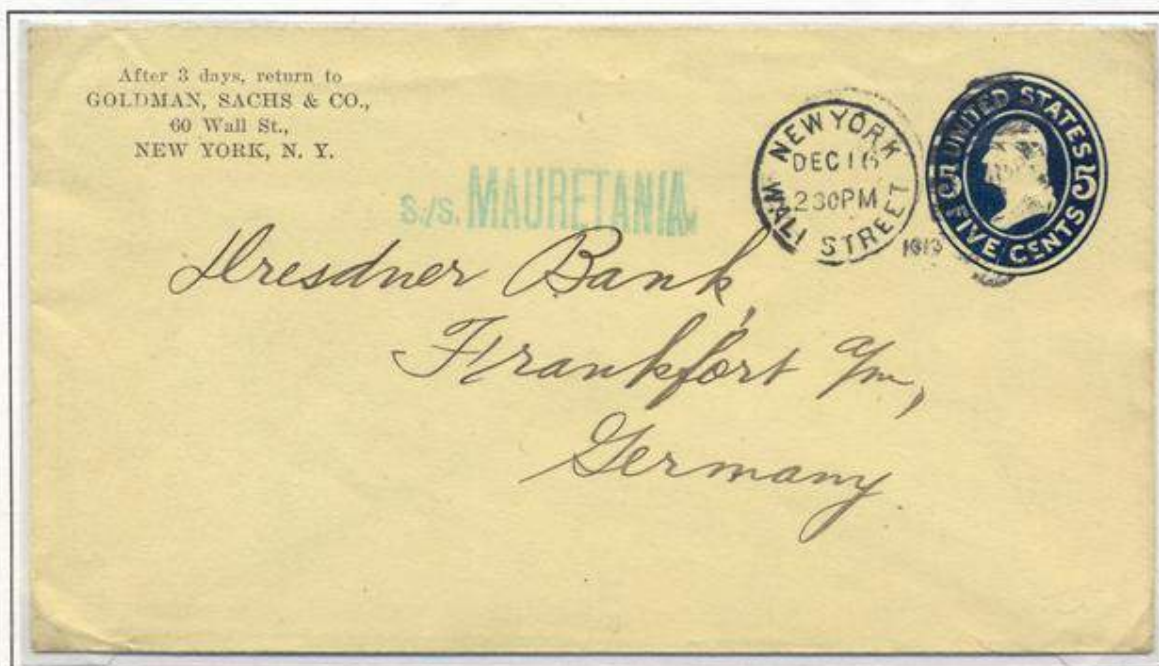 After 3 days, return to
GOLDMAN, SACHS & CO.,
60 Wall St.,
NEW YORK, N. Y.
S/S. MAURETANIA.
NEW YORK
DEC 16
230PM
WALL STREET
1913
UNITED STATES
5 5
FIVE CENTS
Dresdner Bank,
Frankfort a/m,
Germany